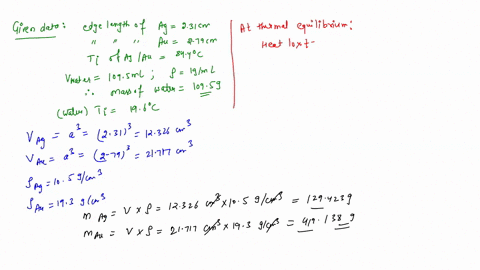 Given data: edge length of Ag = 2.31cm
" " " Au = 2.79cm
Ti of Ag/Au = 84.4°C
Vwater = 109.5mL ; ρ = 1g/mL
∴ mass of water = 109.5g
(water) Ti = 19.6°C
At thermal equilibrium:
Heat lost
V Ag = a³ = (2.31)³ = 12.326 cm³
V Au = a³ = (2.79)³ = 21.717 cm³
ρAg = 10.5 g/cm³
ρAu = 19.3 g/cm³
m Ag = V × ρ = 12.326 cm³ × 10.5 g/cm³ = 129.423g
m Au = V × ρ = 21.717 cm³ × 19.3 g/cm³ = 419.138g